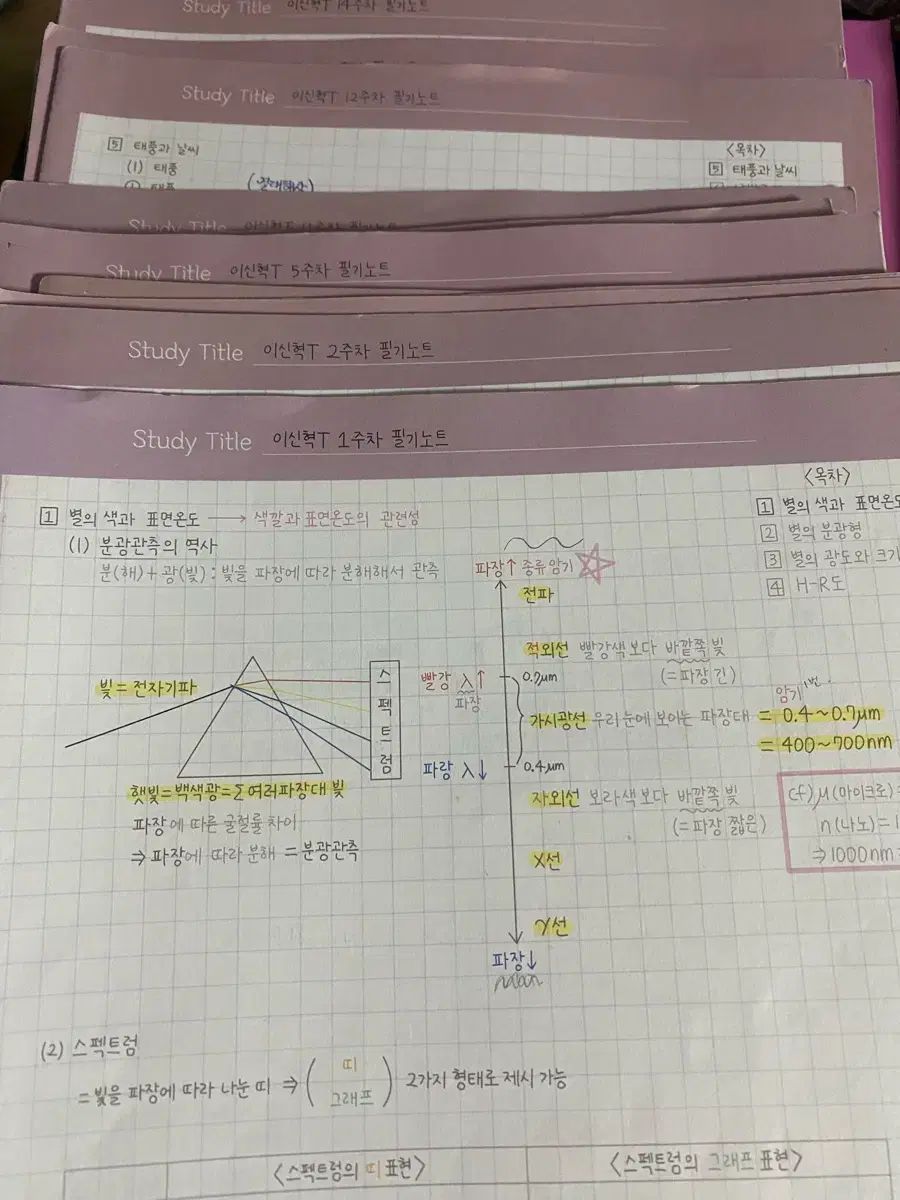 Study Title 이신혁T 14주차 필기노트
Study Title 이신혁T 12주차 필기노트
5 태풍과 날씨
(1) 태풍
① 태풍
<목차>
5 태풍과 날씨
Study Title 이신혁T
Study Title 이신혁T 5주차 필기노트
Study Title 이신혁T 2주차 필기노트
Study Title 이신혁T 1주차 필기노트
<목차>
1 별의 색과 표면온도
2 별의 분광형
3 별의 광도와 크기
4 H-R도
1 별의 색과 표면온도 → 색깔과 표면온도의 관련성
(1) 분광관측의 역사
분(해) + 광(빛) : 빛을 파장에 따라 분해해서 관측
빛 = 전자기파
스펙트럼
빨강 λ↑
파장
파랑 λ↓
햇빛=백색광=Σ여러파장대 빛
파장에 따른 굴절률 차이
⇒ 파장에 따라 분해 = 분광관측
파장↑ 종류 암기
전파
적외선 빨강색보다 바깥쪽 빛
(=파장 긴)
0.7μm
암기 1번
가시광선 우리 눈에 보이는 파장대 = 0.4~0.7μm
= 400~700nm
0.4μm
자외선 보라색보다 바깥쪽 빛
(=파장 짧은)
X선
γ선
파장↓
cf) μ(마이크로)=
n(나노)=1
⇒1000nm=
(2) 스펙트럼
= 빛을 파장에 따라 나눈 띠 ⇒ ( 띠 그래프 ) 2가지 형태로 제시 가능
<스펙트럼의 띠 표현>
<스펙트럼의 그래프 표현>